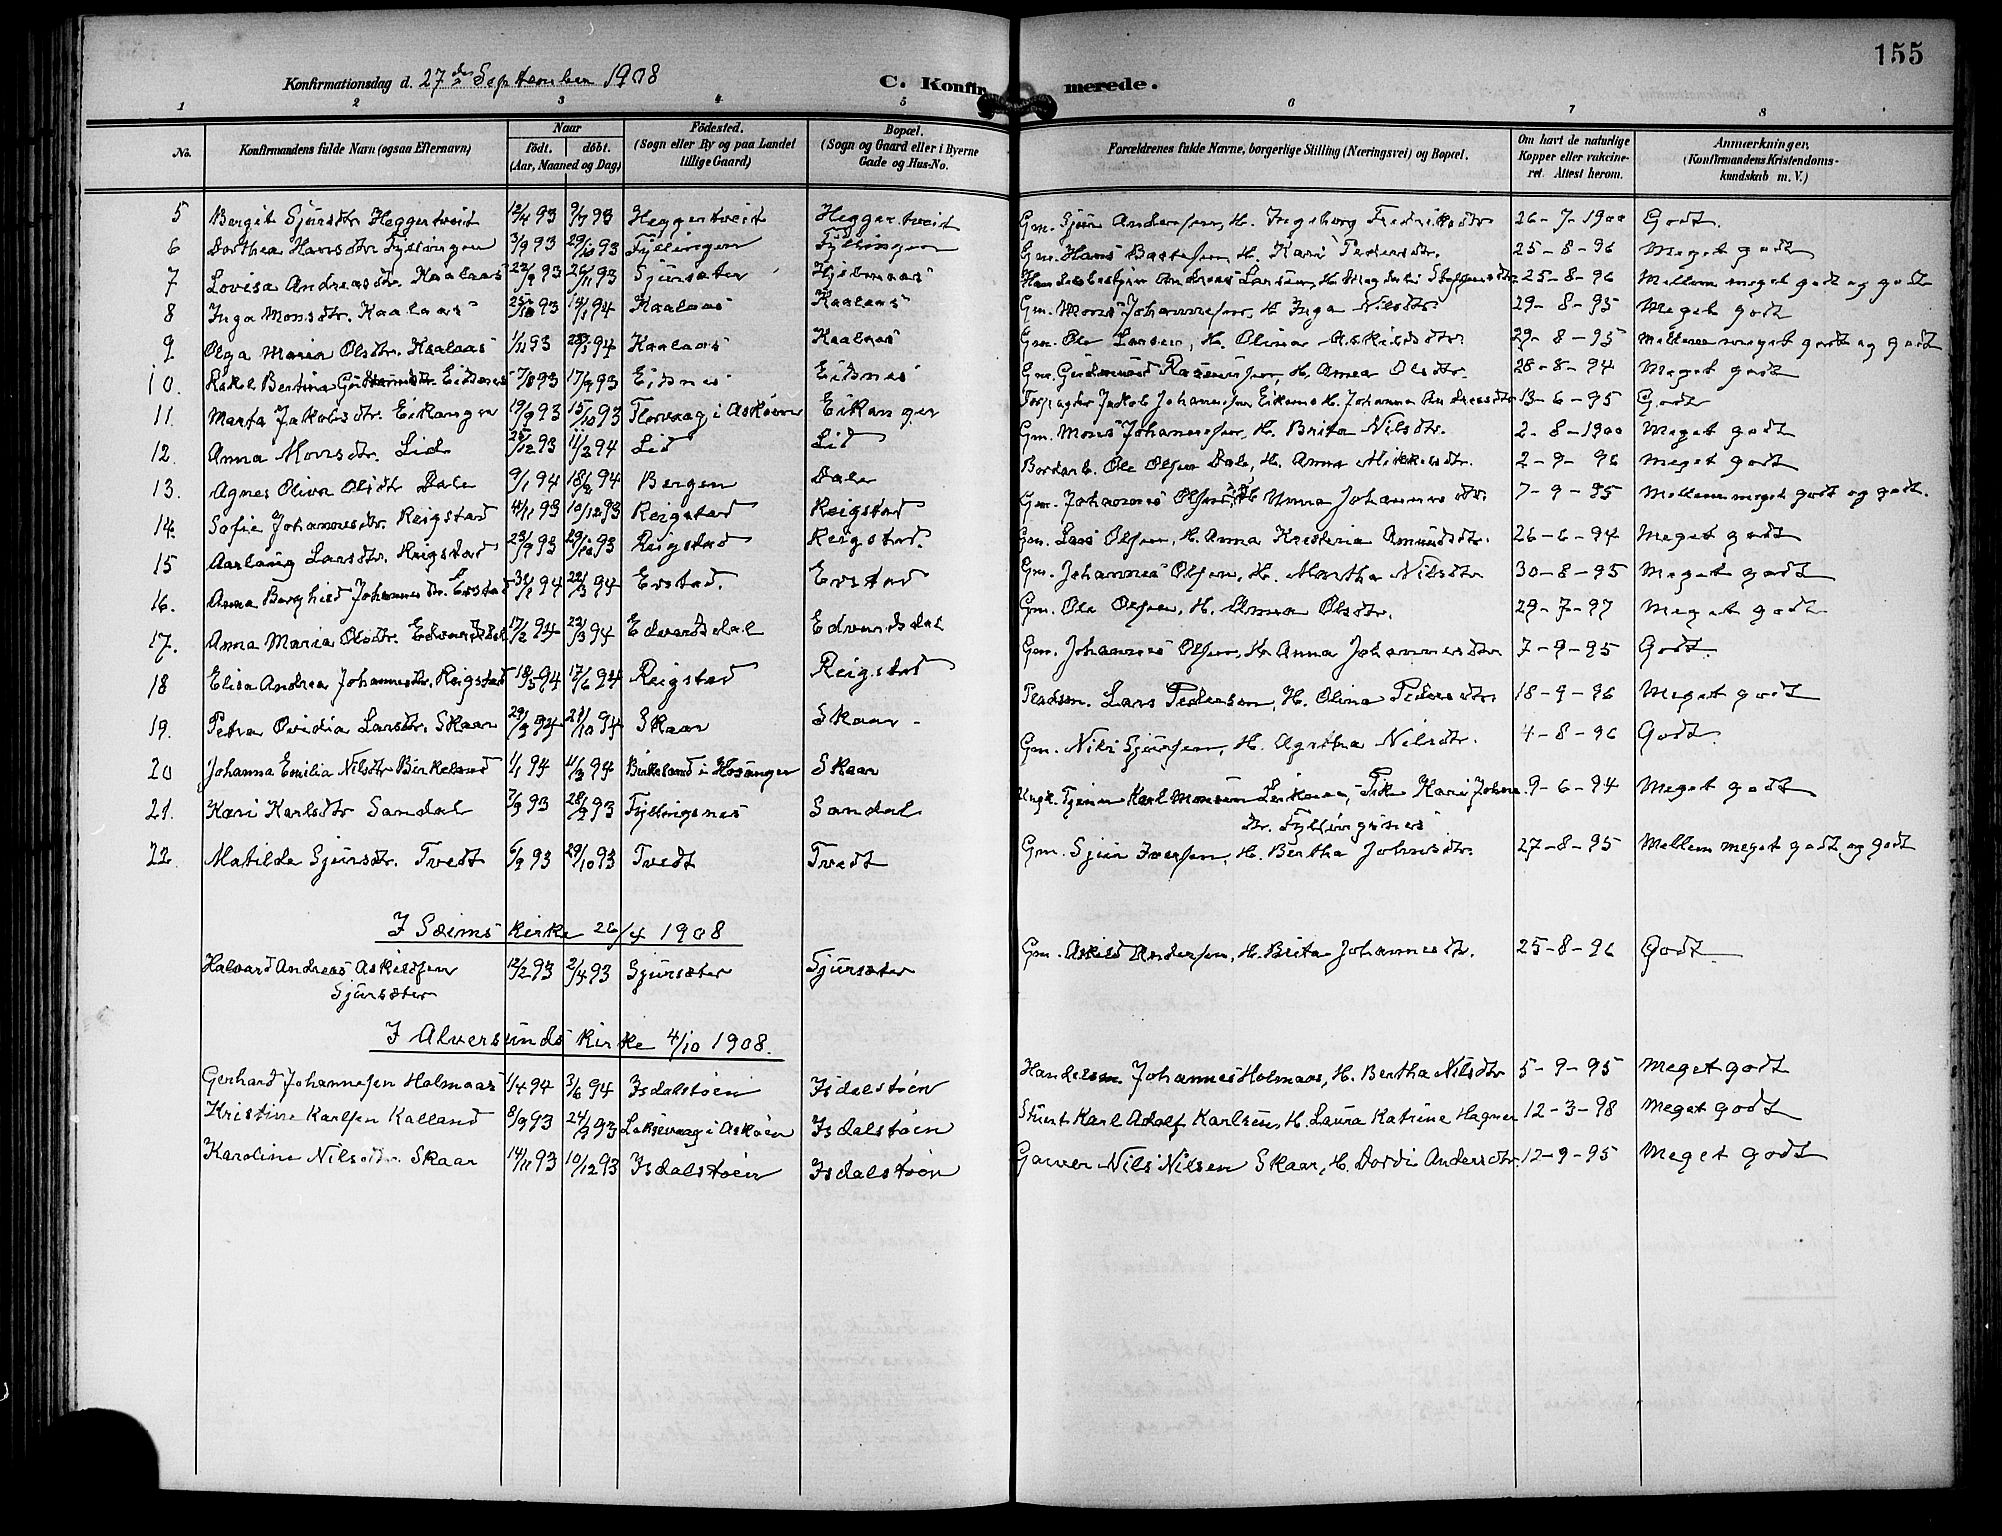 155
Konfirmationsdag d. 27de September 1908
C. Konfirmerede.
1 2 3 4 5 6 7 8
No. Konfirmandens fulde Navn (ogsaa Efternavn) Naar født. døbt. (Aar, Maaned og Dag) Fødested. (Sogn eller By og paa Landet tillige Gaard) Bopæl. (Sogn og Gaard eller i Byerne Gade og Hus-No. Forældrenes fulde Navne, borgerlige Stilling (Næringsvei) og Bopæl. Om havt de naturlige Kopper eller vakcineret. Attest herom. Anmærkninger, (Konfirmandens Kristendomskundskab m. V.)
5 Bergit Sjursdtr. Heggertveit 12/4 93 9/7 93 Heggertveit Heggertveit Gm. Sjur Andersen, H. Ingeborg Fredriksdtr. 26-7-1900 Godt.
6 Dorthea Hansdtr. Fyllingen 3/9 93 29/10 93 Fyllingen Fyllingen Gm. Hans Bastesen, H. Kari Pedersdtr. 25-8-96 Meget godt
7 Lovisa Andreasdtr. Kaalaas 22/9 93 26/11 93 Sjursæter Hjelmaas Andreas Larsen, H. 25-8-96 Mellem meget godt og godt
8 Inga Monsdtr. Kaalaas 25/10 93 14/1 94 Kaalaas Kaalaas Gm. Mons Johannesen, H. Inga Nilsdtr. 29-8-95 Meget godt
9 Olga Maria Olsdtr. Kaalaas 1/11 93 28/1 94 Kaalaas Kaalaas Gm. Ole Larsen, H. Olina Askildsdtr. 29-8-95 Mellem meget godt og godt
10. Rakel Bertina Gudmundsdtr. Eidsnes 7/8 93 17/9 93 Eidsnes Eidsnes Gm. Gudmund Rasmussen, H. Anna Olsdtr. 28-8-94 Meget godt
11. Marta Jakobsdtr. Eikanger 19/9 93 15/10 93 Florvaag i Askøen Eikanger Jakob Johannesen H. Johanna Andreasdtr 13-6-95 Godt
12. Anna Monsdtr. Lid 25/12 93 11/2 94 Lid Lid Gm. Mons Johannesen, H. Brita Nilsdtr. 2-8-1900 Meget godt
13. Agnes Oliva Olsdtr Dale 9/1 94 18/2 94 Bergen Dale Bordarb. Ole Olsen Dale, H. Anna Mikkelsdtr. 2-9-96 Meget godt
14. Sofie Johannesdtr. Reigstad 4/11 93 10/12 93 Reigstad Reigstad Gm. Johannes Olsen, H. Anna Johannesdtr. 7-9-95 Mellem meget godt og godt.
15 Aarlaug Larsdtr. Reigstad 23/9 93 29/10 93 Reigstad Reigstad. Gm. Lars Olsen, H. Anna Kristeria Amundsdtr. 26-6-94 Meget godt
16. Anna Borghild Johannesdtr. Erstad 31/1 94 22/3 94 Erstad. Erstad Gm. Johannes Olsen, H. Martha Nilsdtr 30-8-95 Meget godt
17. Anna Maria Olsdtr. Edvardsdal 17/2 94 22/3 94 Edvardsdal Edvardsdal Gm. Ole Olsen, H. Anna Olsdtr. 29-7-97 Meget godt
18 Elisa Andrea Johannesdtr. Reigstad 18/5 94 17/6 94 Reigstad Reigstad Gm. Johannes Olsen, H. Anna Johannesdtr 7-9-95 Godt.
19. Petra Ovidia Larsdtr. Skaar 29/9 94 21/10 94 Skaar Skaar Pladsm. Lars Pedersen, H. Olina Pedersdtr. 18-9-96 Meget godt
20 Johanna Emilia Nilsdtr Birkeland 1/1 94 4/3 94 Birkeland i Hosanger Skaar Gm. Nils Sjursen, H. Agatha Nilsdtr. 4-8-96 Godt.
21. Kari Karlsdtr Sandal 7/9 93 28/9 93 Fyllingsnes Sandal Ungk. Tjener Karl Monsen Pike Kari Johns 9-6-94 Meget godt
dtr. Fyllingsnes
22. Matilde Sjursdtr. Tvedt 6/9 93 29/10 93 Tvedt Tvedt Gm. Sjur Iversen, H. Bertha Johnsdtr. 27-8-95 Mellem meget godt og godt
I Seims Kirke 26/4 1908
Halvard Andreas Askildsen 12/2 93 2/4 93 Sjursæter Sjursæter Gm. Askild Andersen, H. Brita Johannesdtr. 25-8-96 Godt.
Sjursæter
I Alversunds Kirke 4/10 1908.
Gerhard Johannesen Holmaas 1/4 94 3/6 94 Isdalstøen Isdalstøen Handelsm. Johannes Holmaas, H. Bertha Nilsdtr 5-9-95 Meget godt
Kristine Karlsen Kalland 8/9 93 24/9 93 i Askøen Isdalstøen Karl Adolf Karlsen, H. Laura Katrine Hagner 12-3-98 Meget godt
Karoline Nilsdtr. Skaar 14/11 93 10/12 93 Isdalstøen Isdalstøen Garver Nils Nilsen Skaar, H. Dordi Andersdtr. 12-9-95 Meget godt